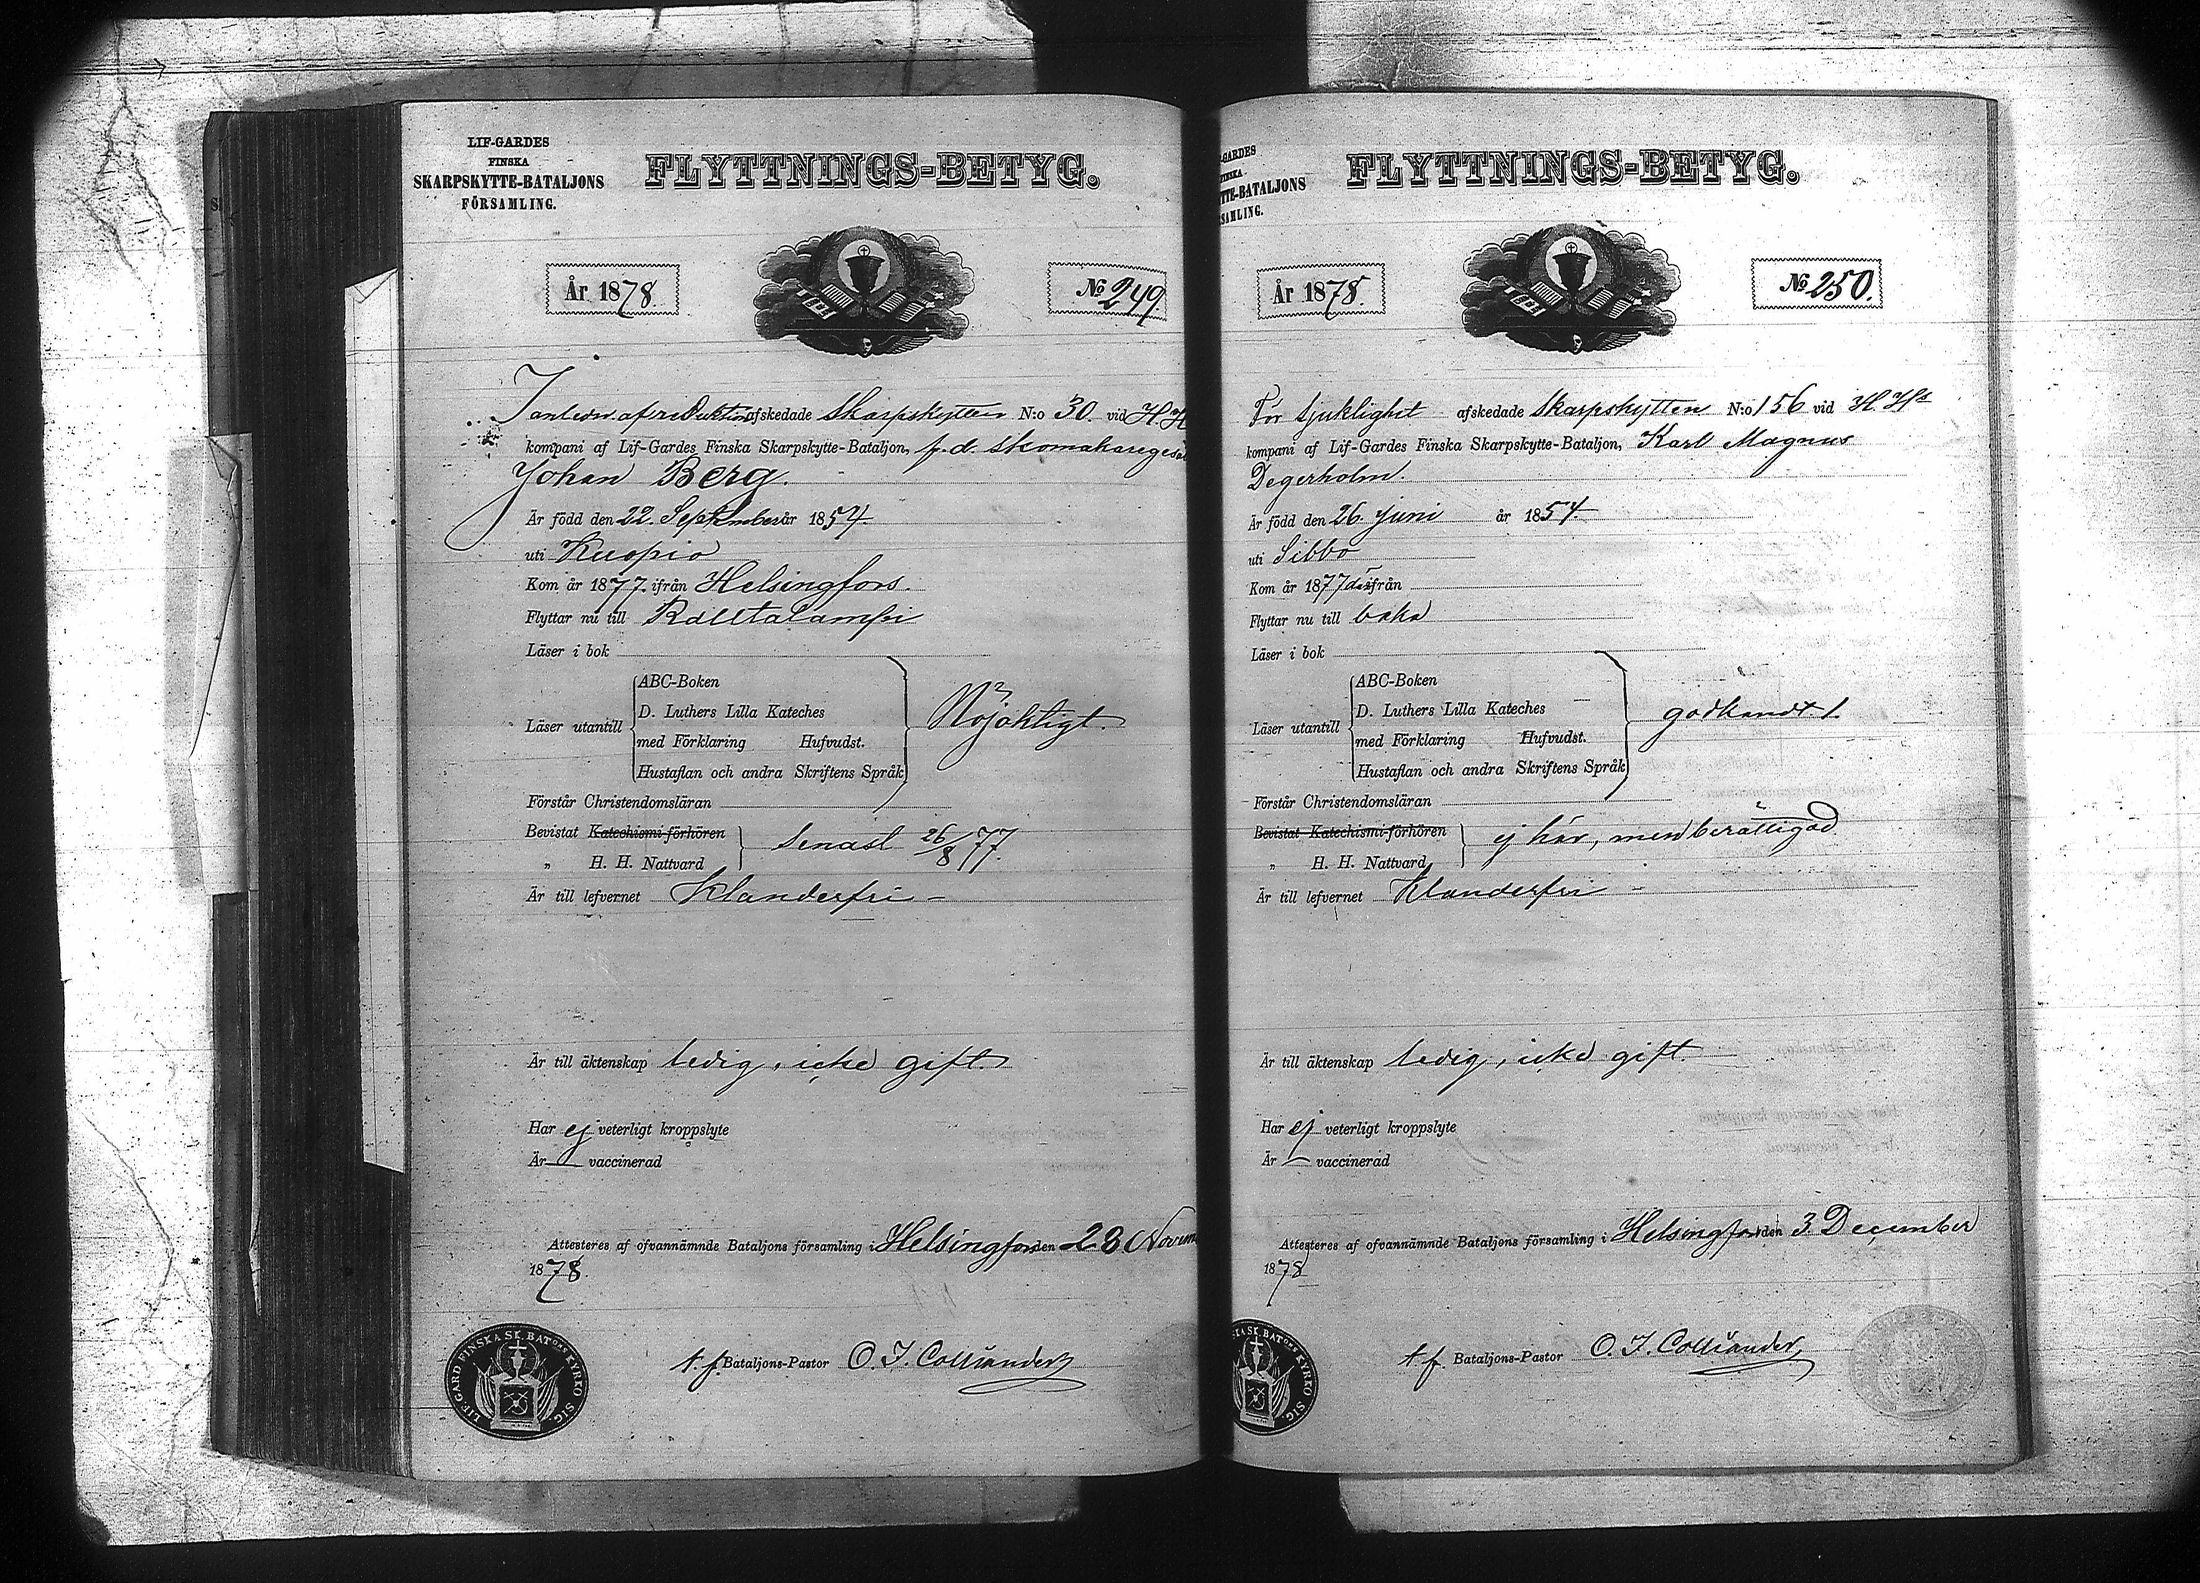 LIF-GARDES
FINSKA
SKARPSKYTTE-BATALJONS
FÖRSAMLING.
FLYTTNINGS-BETYG.
År 1878.
No 249.
I anledn. af reduktion afskedade Skarpskytten N:o 30. vid H. H
kompani af Lif-Gardes Finska Skarpskytte-Bataljon, f.d. skomakaregesäl
Johan Berg.
Är född den 22. September år 1854
uti Kuopio
Kom år 1877. ifrån Helsingfors.
Flyttar nu till Rautalampi
Läser i bok
Läser utantill
ABC-Boken
D. Luthers Lilla Kateches
med Förklaring Hufvudst.
Hustaflan och andra Skriftens Språk
Nöjaktigt.
Förstår Christendomsläran
Bevistat Katechismi-förhören
„ H. H. Nattvard
senast 26/8 77.
Är till lefvernet Klanderfri –
Är till äktenskap ledig, icke gift.
Har ej veterligt kroppslyte
Är — vaccinerad
Attesteres af ofvannämnde Bataljons församling i Helsingfors den 28 Novem
1878.
t. f. Bataljons-Pastor O. I. Colliander
LIF-GARD FINSKA SK. BATONS KYRKO SIG.
GARDES
TTE-BATALJONS
SAMLING.
FLYTTNINGS-BETYG.
År 1878.
No 250.
För sjuklighet afskedade Skarpskytten N:o 156 vid H. H's
kompani af Lif-Gardes Finska Skarpskytte-Bataljon, Karl Magnus
Degerholm.
Är född den 26. Juni år 1854.
uti Sibbo
Kom år 1877 därifrån
Flyttar nu till baka
Läser i bok
Läser utantill
ABC-Boken
D. Luthers Lilla Kateches
med Förklaring Hufvudst.
Hustaflan och andra Skriftens Språk
godkändt.
Förstår Christendomsläran
Bevistat Katechismi-förhören
„ H. H. Nattvard
ej här, men berättigad
Är till lefvernet Klanderfri –
Är till äktenskap ledig, icke gift.
Har ej veterligt kroppslyte
Är — vaccinerad
Attesteres af ofvannämnde Bataljons församling i Helsingfors den 3. December
1878
t. f. Bataljons-Pastor O. I. Colliander
SKA SK. BATONS KYRKO SIG.